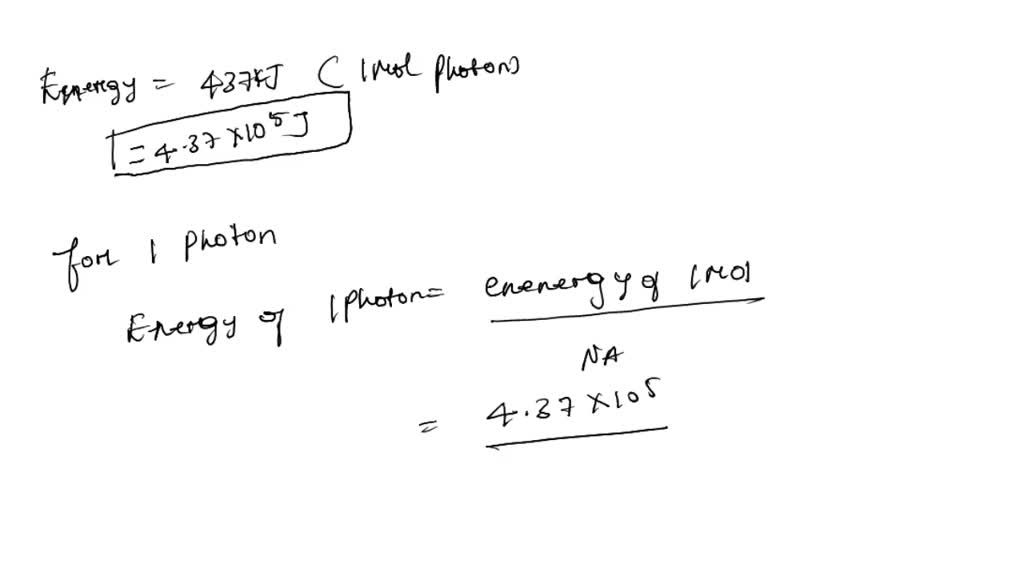 Energy = 437KJ ( 1 Mol photon)
= 4.37 × 10⁵ J
for 1 photon
Energy of 1 photon = enenergy of 1 mol
NA
= 4.37 × 10⁵